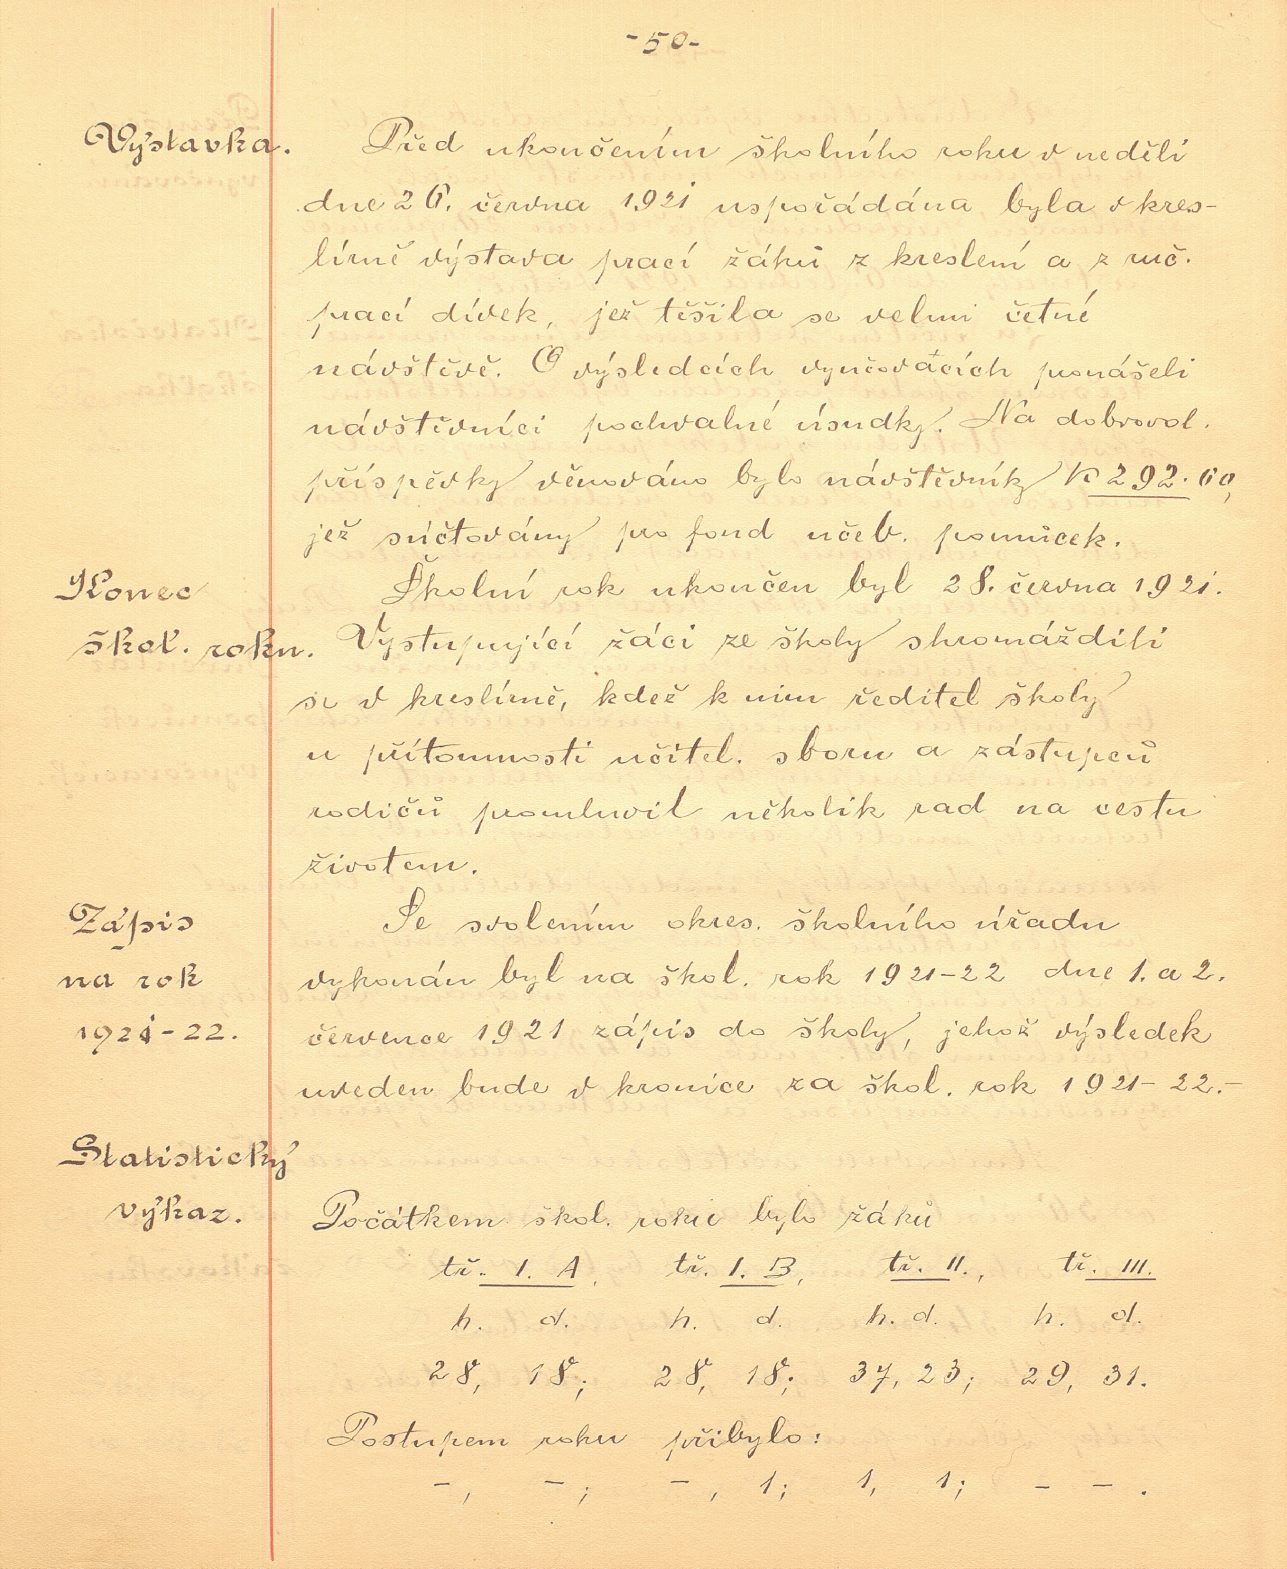 -50-
Výstavka.
Před ukončením školního roku v neděli
dne 26. června 1921 uspořádána byla v kres-
lírně výstava prací žáků z kreslení a z ruč.
prací dívek, jež těšila se velmi četné
návštěvě. O výsledcích vyučovacích pronášeli
návštěvníci pochvalné úsudky. Na dobrovol.
příspěvky věnováno bylo návštěvníky K 292.60,
jež súčtovány pro fond učeb. pomůcek.
Konec
škol. roku.
Školní rok ukončen byl 28. června 1921.
Vystupující žáci ze školy shromáždili
se v kreslírně, kdež k nim ředitel školy
u přítomnosti učitel. sboru a zástupců
rodičů promluvil několik rad na cestu
životem.
Zápis
na rok
1921-22.
Se svolením okres. školního úřadu
vykonán byl na škol. rok 1921-22 dne 1. a 2.
července 1921 zápis do školy, jehož výsledek
uveden bude v kronice za škol. rok 1921-22.-
Statistický
výkaz.
Počátkem škol. roku bylo žáků
tř. I. A, tř. I. B, tř. II., tř. III.
h. d. h. d. h. d. h. d.
28, 18; 28, 18; 37, 23; 29, 31.
Postupem roku přibylo:
-, -; -, 1; 1, 1; - - .